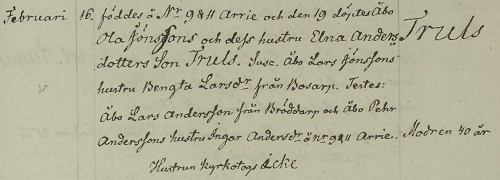 Februari 16. föddes å Nr 9 & 11 Arrie och den 19 döptes Åbo
Ola Jönssons och dess hustru Elna Anders Truls
dotters Son Truls. Susc. Åbo Lars Jönssons
hustru Bengta Larsdr från Bosarp. Testes:
Åbo Lars Andersson från Bröddarp och Åbo Pehr
Anderssons hustru Ingar Andersdr å nr 9 & 11 Arrie. Modren 40 år
Hustrun kyrkotogs icke